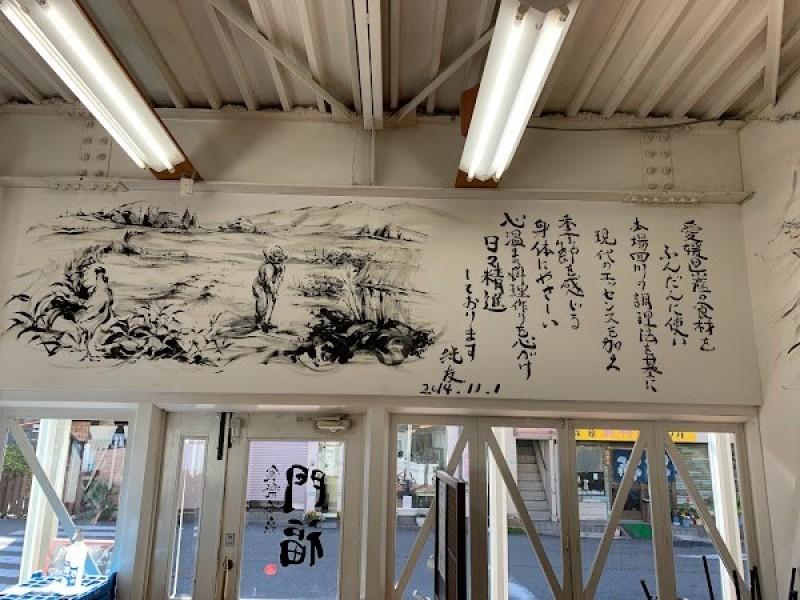 愛媛県産の食材を
ふんだんに使い
本場四川の調理法を基に
現代のエッセンスを加え
季節を感じる
身体にやさしい
心温まる料理作りを心がけ
日々精進
しております
純友
2014.11.1
門福